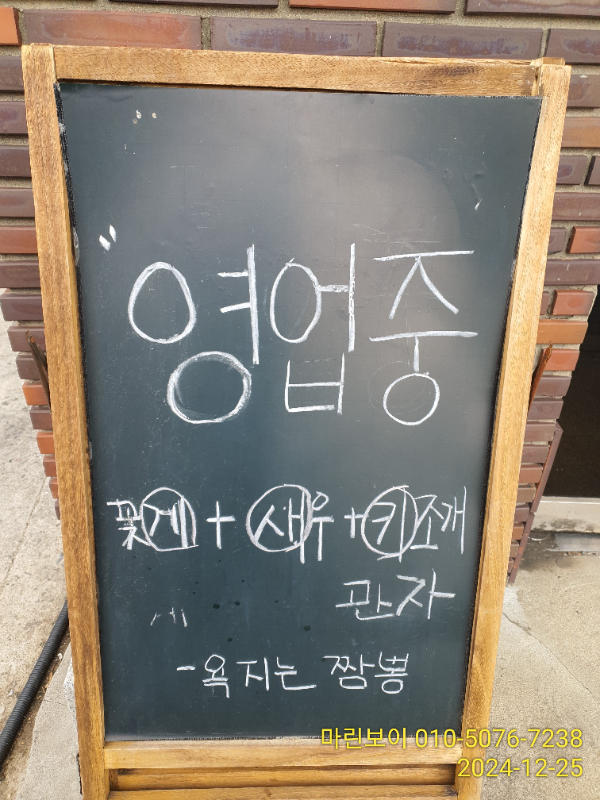 영업중
꽃게 + 새우 + 키조개
관자
- 욕지는 짬뽕
마린보이 010-5076-7238
2024-12-25